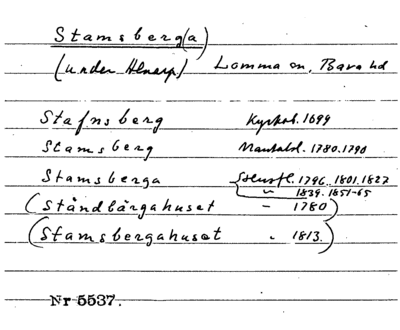 Stamsberg(a)
(under Alnarp) Lomma sn, Bara hd
Stafnsberg Kyrkob. 1699
Stamsberg Mantalsl. 1780.1790
Stamsberga Husfl. 1796. 1801. 1827
" 1839. 1851-65
(Ståndbärgahuset – 1780)
(Stamsbergahuset " 1813.)
Nr 5537.